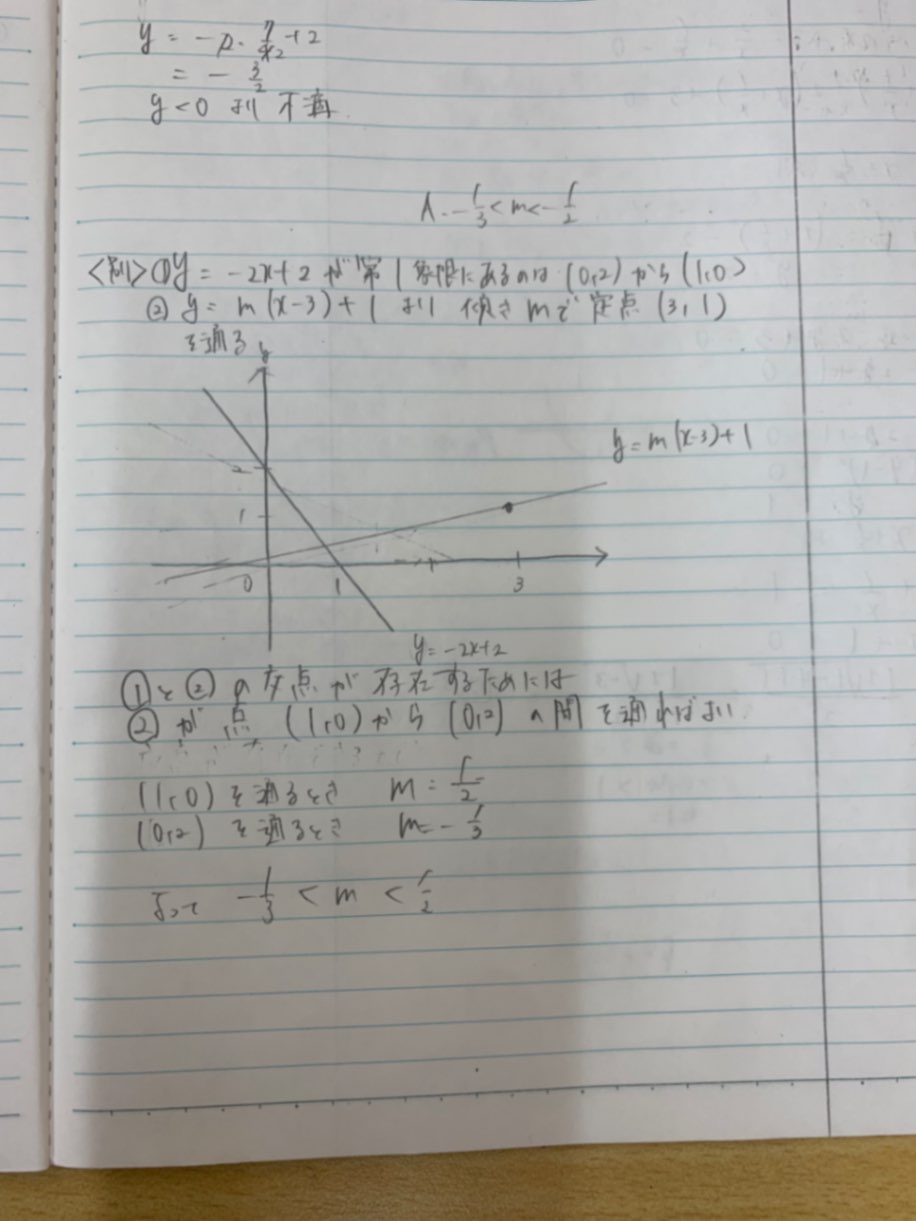 y = -2・7/42 + 2
= - 3/2
y<0 より 不適
A. -1/3 < m < 1/2
<別> ① y = -2x+2 が第1象限にあるのは (0,2) から (1,0)
② y = m(x-3)+1 より 傾き mで 定点 (3,1)
を通る
y
y = m(x-3)+1
2
1
0 1 3
y = -2x+2
① と ② の交点が存在するためには
② が 点 (1,0) から (0,2) の間を通ればよい.
(1,0) を通るとき m = 1/2
(0,2) を通るとき m = -1/3
よって -1/3 < m < 1/2